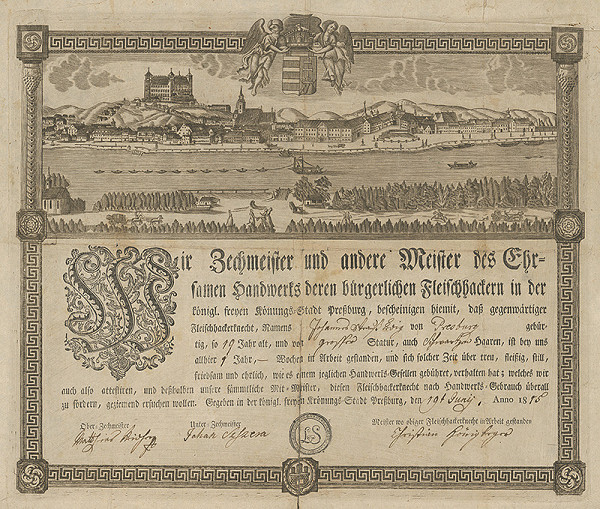 Wir Zechmeister und andere Meister des Ehr-
samen Handwerks deren bürgerlichen Fleischhackern in der
königl. freyen Krönungs-Stadt Preßburg, bescheinigen hiemit, daß gegenwärtiger
Fleischhackerknecht, Namens Johannes von Presburg gebür-
tig, so 19 Jahr alt, und von großer Statur, auch Haaren, ist bey uns
allhier 1 Jahr, — Wochen in Arbeit gestanden, und sich solcher Zeit über treu, fleißig, still,
friedsam und ehrlich, wie es einem jeglichen Handwerks-Gesellen gebühret, verhalten hat; welches wir
auch also attestiren, und deßhalben unsere sämmtliche Mit-Meister, diesen Fleischhackerknecht nach Handwerks-Gebrauch überall
zu fördern, geziemend ersuchen wollen. Gegeben in der königl. freyen Krönungs-Stadt Preßburg, den 19t Junij, Anno 18
Ober-Zechmeister Unter-Zechmeister Meister wo obiger Fleischhackerknecht in Arbeit gestanden
Johah Christian
LS